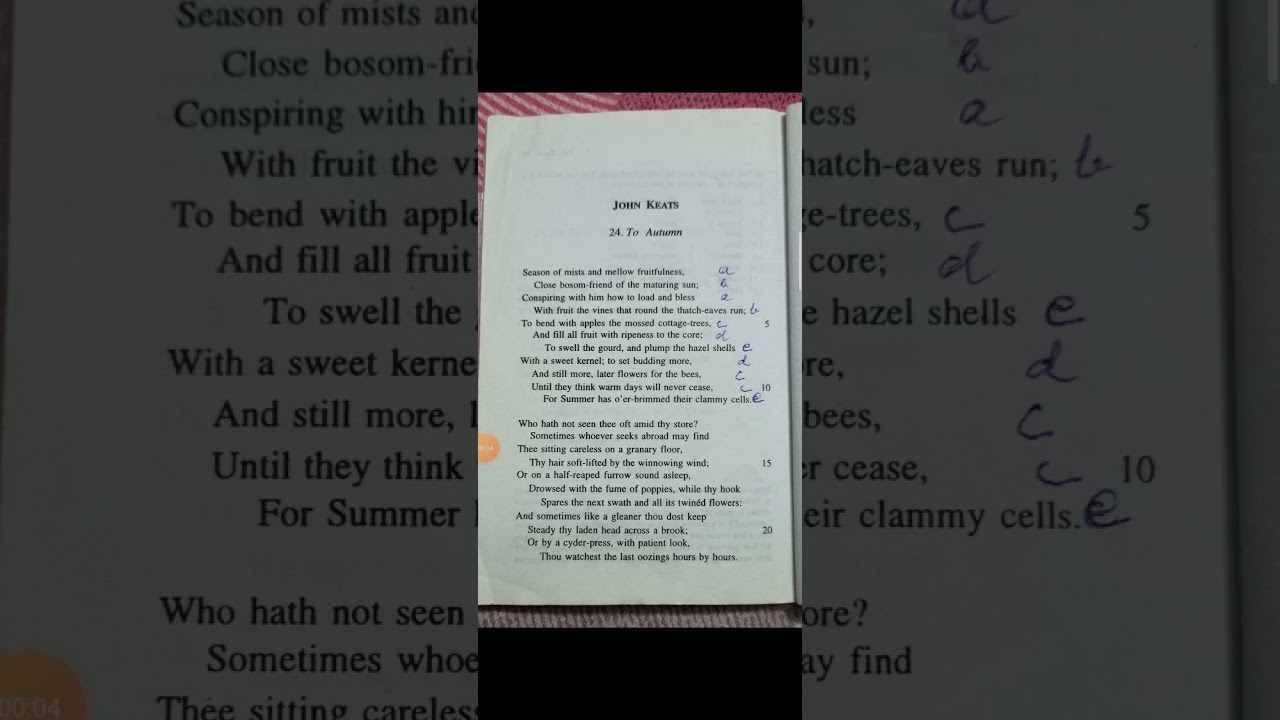 JOHN KEATS
24. To Autumn
Season of mists and mellow fruitfulness, a
Close bosom-friend of the maturing sun; b
Conspiring with him how to load and bless a
With fruit the vines that round the thatch-eaves run; b
To bend with apples the mossed cottage-trees, c 5
And fill all fruit with ripeness to the core; d
To swell the gourd, and plump the hazel shells e
With a sweet kernel; to set budding more, d
And still more, later flowers for the bees, c
Until they think warm days will never cease, c 10
For Summer has o'er-brimmed their clammy cells. e
Who hath not seen thee oft amid thy store?
Sometimes whoever seeks abroad may find
Thee sitting careless on a granary floor,
Thy hair soft-lifted by the winnowing wind; 15
Or on a half-reaped furrow sound asleep,
Drowsed with the fume of poppies, while thy hook
Spares the next swath and all its twinéd flowers:
And sometimes like a gleaner thou dost keep
Steady thy laden head across a brook; 20
Or by a cyder-press, with patient look,
Thou watchest the last oozings hours by hours.
00:04